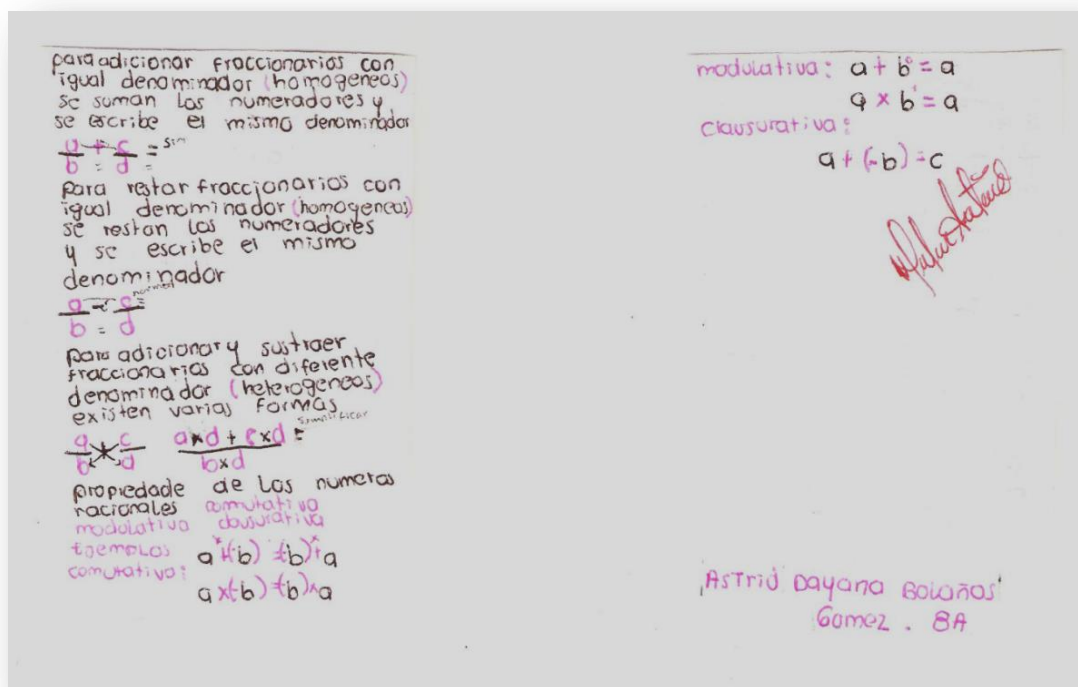 para adicionar fraccionarios con
igual denominador (homogeneos)
se suman los numeradores y
se escribe el mismo denominador
a/b + c/d =
para restar fraccionarios con
igual denominador (homogeneos)
se restan los numeradores
y se escribe el mismo
denominador
a/b - c/d =
para adicionar y sustraer
fraccionarios con diferente
denominador (heterogeneos)
existen varias formas
simplificar
a/b c/d a×d + c×d / b×d =
propiedade de los numeros
racionales comutativa
modulativa clausurativa
Ejemplos a+(-b) = (-b)+a
comutativa:
a×(-b) = (-b)×a
modulativa: a + b° = a
a × b' = a
Clausurativa:
a + (-b) = c
Astrid Dayana Bolaños
Gomez . 8A